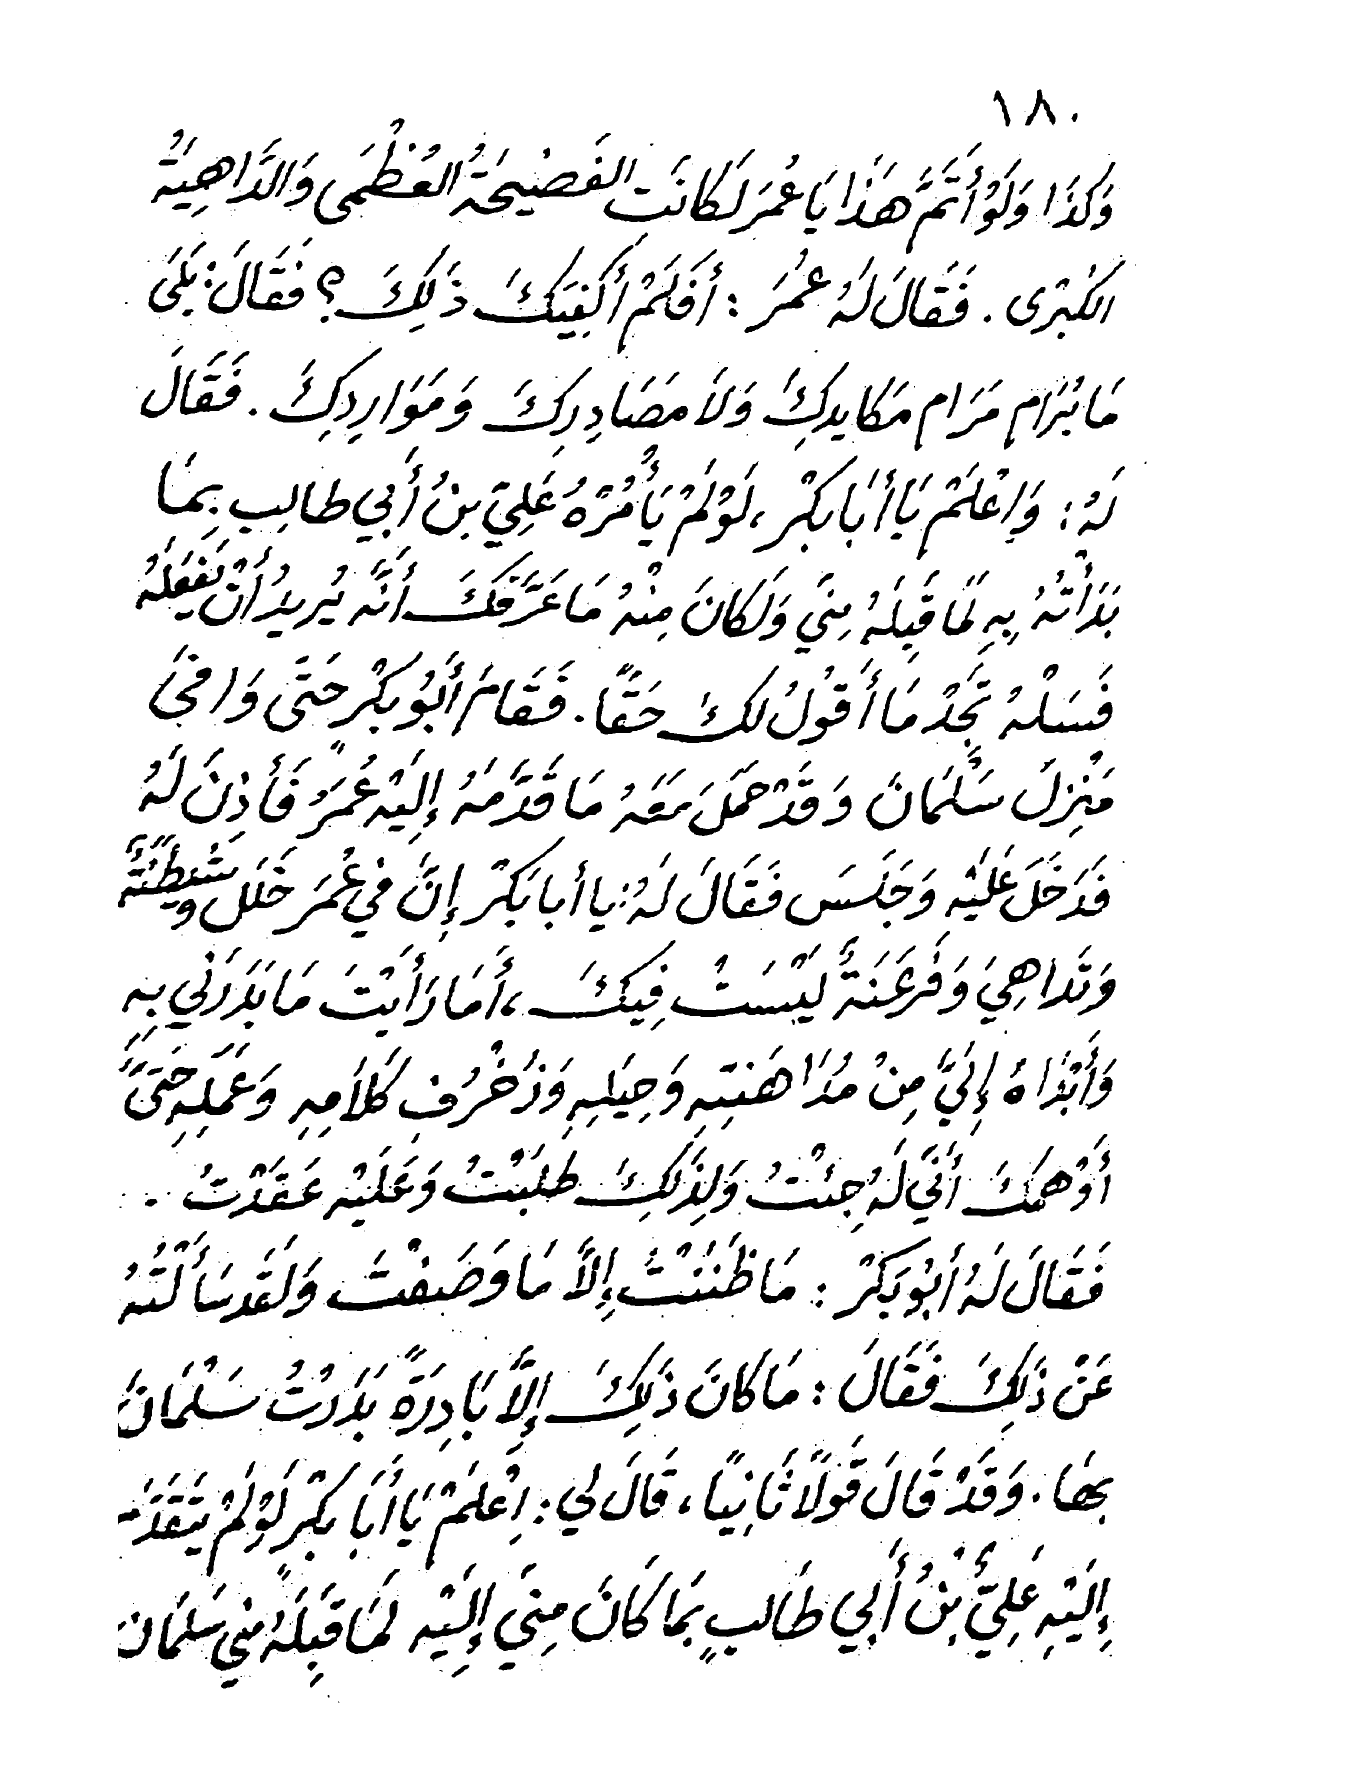 ١٨٠
وَكَذَا وَلَوْ أَتَمَّ هَذَا يَا عُمَرَ لَكَانَتِ الفَضِيحَةُ العُظْمَى وَالدَّاهِيَةُ
الكُبْرَى . فَقَالَ لَهُ عُمَرَ : أَفَلَمْ أَكْفِيَكَ ذَلِكَ ؟ فَقَالَ : بَلَى
مَا يُرَام مَرَام مَكَايِدِكَ وَلاَ مَصَادِرِكَ وَمَوَارِدِكَ . فَقَالَ
لَهُ : وَاِعْلَمْ يَا أَبَا بَكْرٍ ، لَوْلَمْ يَأْمُرْهُ عَلِيّ بِنُ أَبِي طالِبٍ بِمَا
بَدَأْتُهُ بِهِ لَمَا قَبِلَهُ مِنِّي وَلَكَانَ مِنْهُ مَا عَرَّفَكَ أَنَّه يُرِيدُ أَنْ يَفْعَلَهُ
فَسَلْهُ تَجِدْ مَا أَقُولُ لَكَ حَقًّا . فَقَامَ أَبُو بَكْرٍ حَتَّى وَافَى
مَنْزِلَ سَلْمَانَ وَقَدْ حَمَلَ مَعَهُ مَا قَدَّمَهُ إِلَيْهِ عُمَرُ فَأَذِنَ لَهُ
فَدَخَلَ عَلَيْهِ وَجَلَسَ فَقَالَ لَهُ : يا أبا بَكْرٍ إِنَّ فِي عُمَرَ خَلَلٍ وشَيْطَنَةً
وَتَدَاهِيَ وَفَرعَنَةٌ لَيْسَتْ فِيكَ ، أَمَا رَأَيْتَ مَا بَدَرَنِي بِهِ
وَأَبْدَاهُ إِلَيَّ مِنْ مُدَاهَنِتِهِ وَحِيَلِهِ وَزُخْرُفِ كَلاَمِهِ وَعَمَلِهِ حَتَّى
أَوْهَمَكَ أَنِّي لَهُ جِئْتُ وَلِذَلِكَ طَلَبْتُ وَعَلَيْهِ عَقَدْتُ .
فَقَالَ لَهُ أَبُو بَكْرٍ : مَا ظَنَنْتُ إِلاَّ مَا وَصَفْتَ وَلَقَد سَأَلْتُهُ
عَنْ ذَلِكَ فَقَالَ : مَا كَانَ ذَلِكَ إِلَّا بَادِرَةً بَدَرْتُ سَلْمَانَ
بِهَا . وَقَدْ قَالَ قَولاً ثَانِيًا ، قَالَ لِي : اِعْلَمْ يَا أَبَا بَكْرٍ لَوْ لَمْ يَتَقَدَّمَ
إِلَيْهِ عَلِيُّ بْنُ أَبِي طَالبٍ بِمَا كَانَ مِنِّي إِلَيْهِ لَمَا قَبِلَهُ مِنِّي سَلمَان